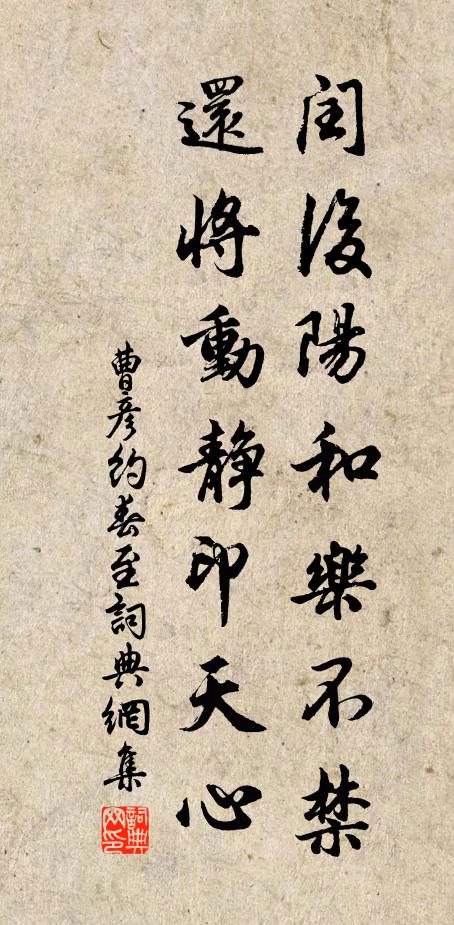 閏後陽和樂不禁
還將動靜印天心
曹彥約春至詞典網集
詞典网印